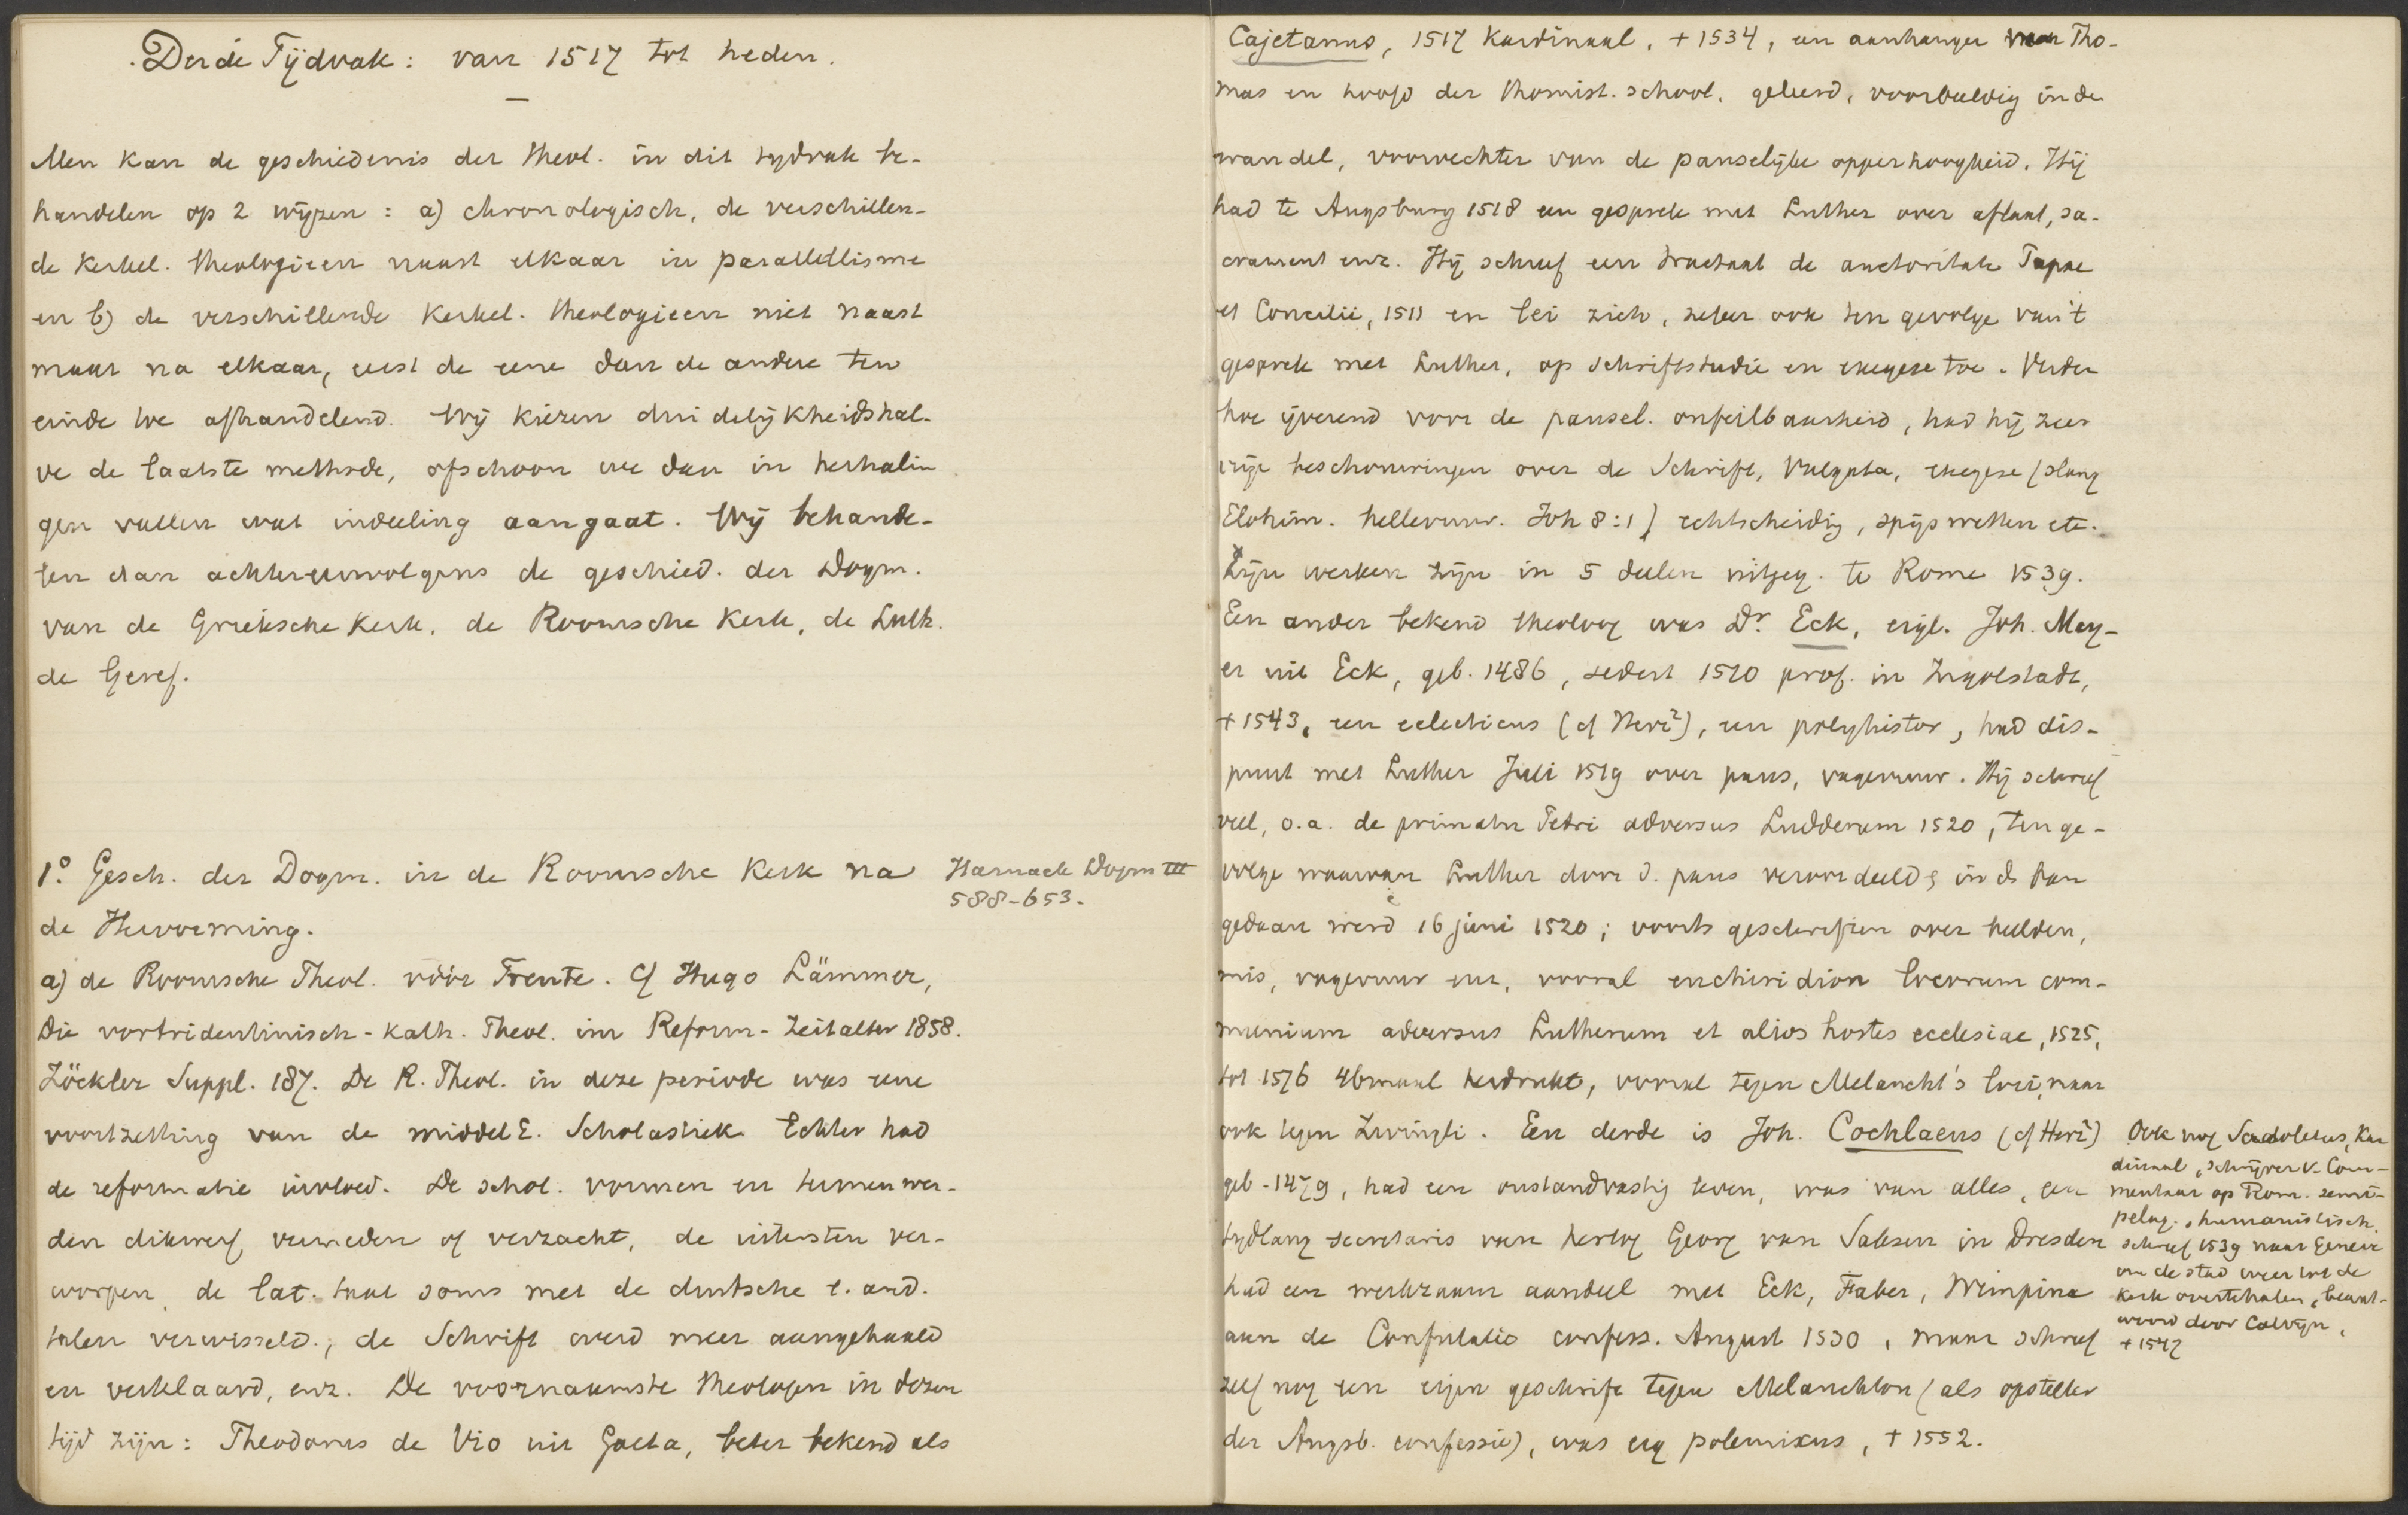 Derde Tijdvak: van 1517 tot heden.
Men kan de geschiedenis der theol. in dit tijdvak be-
handelen op 2 wijzen: a) chronologisch, de verschillen-
de kerkel. theologieen naast elkaar in parallellisme
en b) de verschillende kerkel. theologieen niet naast
maar na elkaar, eerst de eene dan de andere ten
einde toe afhandelend. Wij kiezen duidelijkheidshal-
ve de laatste methode, ofschoon we dan in herhalin
gen vallen wat indeeling aangaat. Wij behande-
len dan achtereenvolgens de geschied. der Dogm.
van de Grieksche Kerk, de Roomsche Kerk, de Luth.
de Geref.
1° Gesch. der Dogm. in de Roomsche Kerk na
de Hervorming.
Harnack Dogm III
588-653.
a) de Roomsche Theol. vóór Trente. Cf Hugo Lämmer,
Die vortridentinisch-kath. Theol. im Reform-Zeitalter 1858.
Zöckler Suppl. 187. De R. Theol. in deze periode was eene
voortzetting van de middelE. Scholastiek. Echter had
de reformatie invloed. De schol. vormen en termen wer-
den dikwerf vermeden of verzacht, de uitersten ver-
worpen, de lat. taal soms met de duitsche e. and.
talen verwisseld; de Schrift werd meer aangehaald
en verklaard, enz. De voornaamste theologen in dezen
tijd zijn: Theodorus de Vio uit Gaeta, beter bekend als
Cajetanus, 1517 Kardinaal, + 1534, een aanhanger van Tho-
mas en hoofd der thomist. school, geleerd, voorbeeldig in de
wandel, voorvechter van de pauselijke opperhoogheid. Hij
had te Augsburg 1518 een gesprek met Luther over aflaat, sa-
crament enz. Hij schreef een tractaat de auctoritate Papae
et Concilii, 1511 en lei zich, zeker ook ten gevolge van 't
gesprek met Luther, op Schriftstudie en exegese toe. Verder
hoe ijverend voor de pausel. onfeilbaarheid, had hij zeer
vrije beschouwingen over de Schrift, Vulgata, exegese (slang
Elohim. hellevuur. Joh 8:1) echtscheidig, spijswetten etc.
Zijn werken zijn in 5 deelen uitgeg. te Rome 1539.
Een ander bekend theoloog was Dr. Eck, eigl. Joh. Mey-
er uit Eck, geb. 1486, sedert 1510 prof. in Ingolstadt,
+ 1543, een eclecticus (cf Herz²), een polyhistor, had dis-
puut met Luther Juli 1519 over paus, vagevuur. Hij schreef
veel, o.a. de primatu Petri adversus Ludderum 1520, ten ge-
volge waarvan Luther door d. paus veroordeeld & in d ban
gedaan werd 16 juni 1520; voorts geschriften over beelden,
mis, vagevuur enz, vooral enchiridion locorum com-
munium adversus Lutherum et alios hostes ecclesiae, 1525,
tot 1576 46maal herdrukt, vooral tegen Melancht's loci, maar
ook tegen Zwingli. Een derde is Joh. Cochlaeus (cf Herz²)
geb. 1479, had een onstandvastig leven, was van alles, een
tijdlang secretaris van hertog Georg van Saksen in Dresden
had een werkzaam aandeel met Eck, Faber, Wimpina
aan de Confutatio confess. August 1530, maar schreef
zelf nog een eigen geschrift tegen Melanchton (als opsteller
der Augsb. confessie), was erg polemicus, + 1552.
Ook nog Sadoletus, Kar
dinaal, schrijver v. Com-
mentaar op Rom. semi-
pelag., humanistisch.
schreef 1539 naar Geneve
om de stad weer tot de
Kerk overtehalen, beant-
woord door Calvijn,
+ 1547